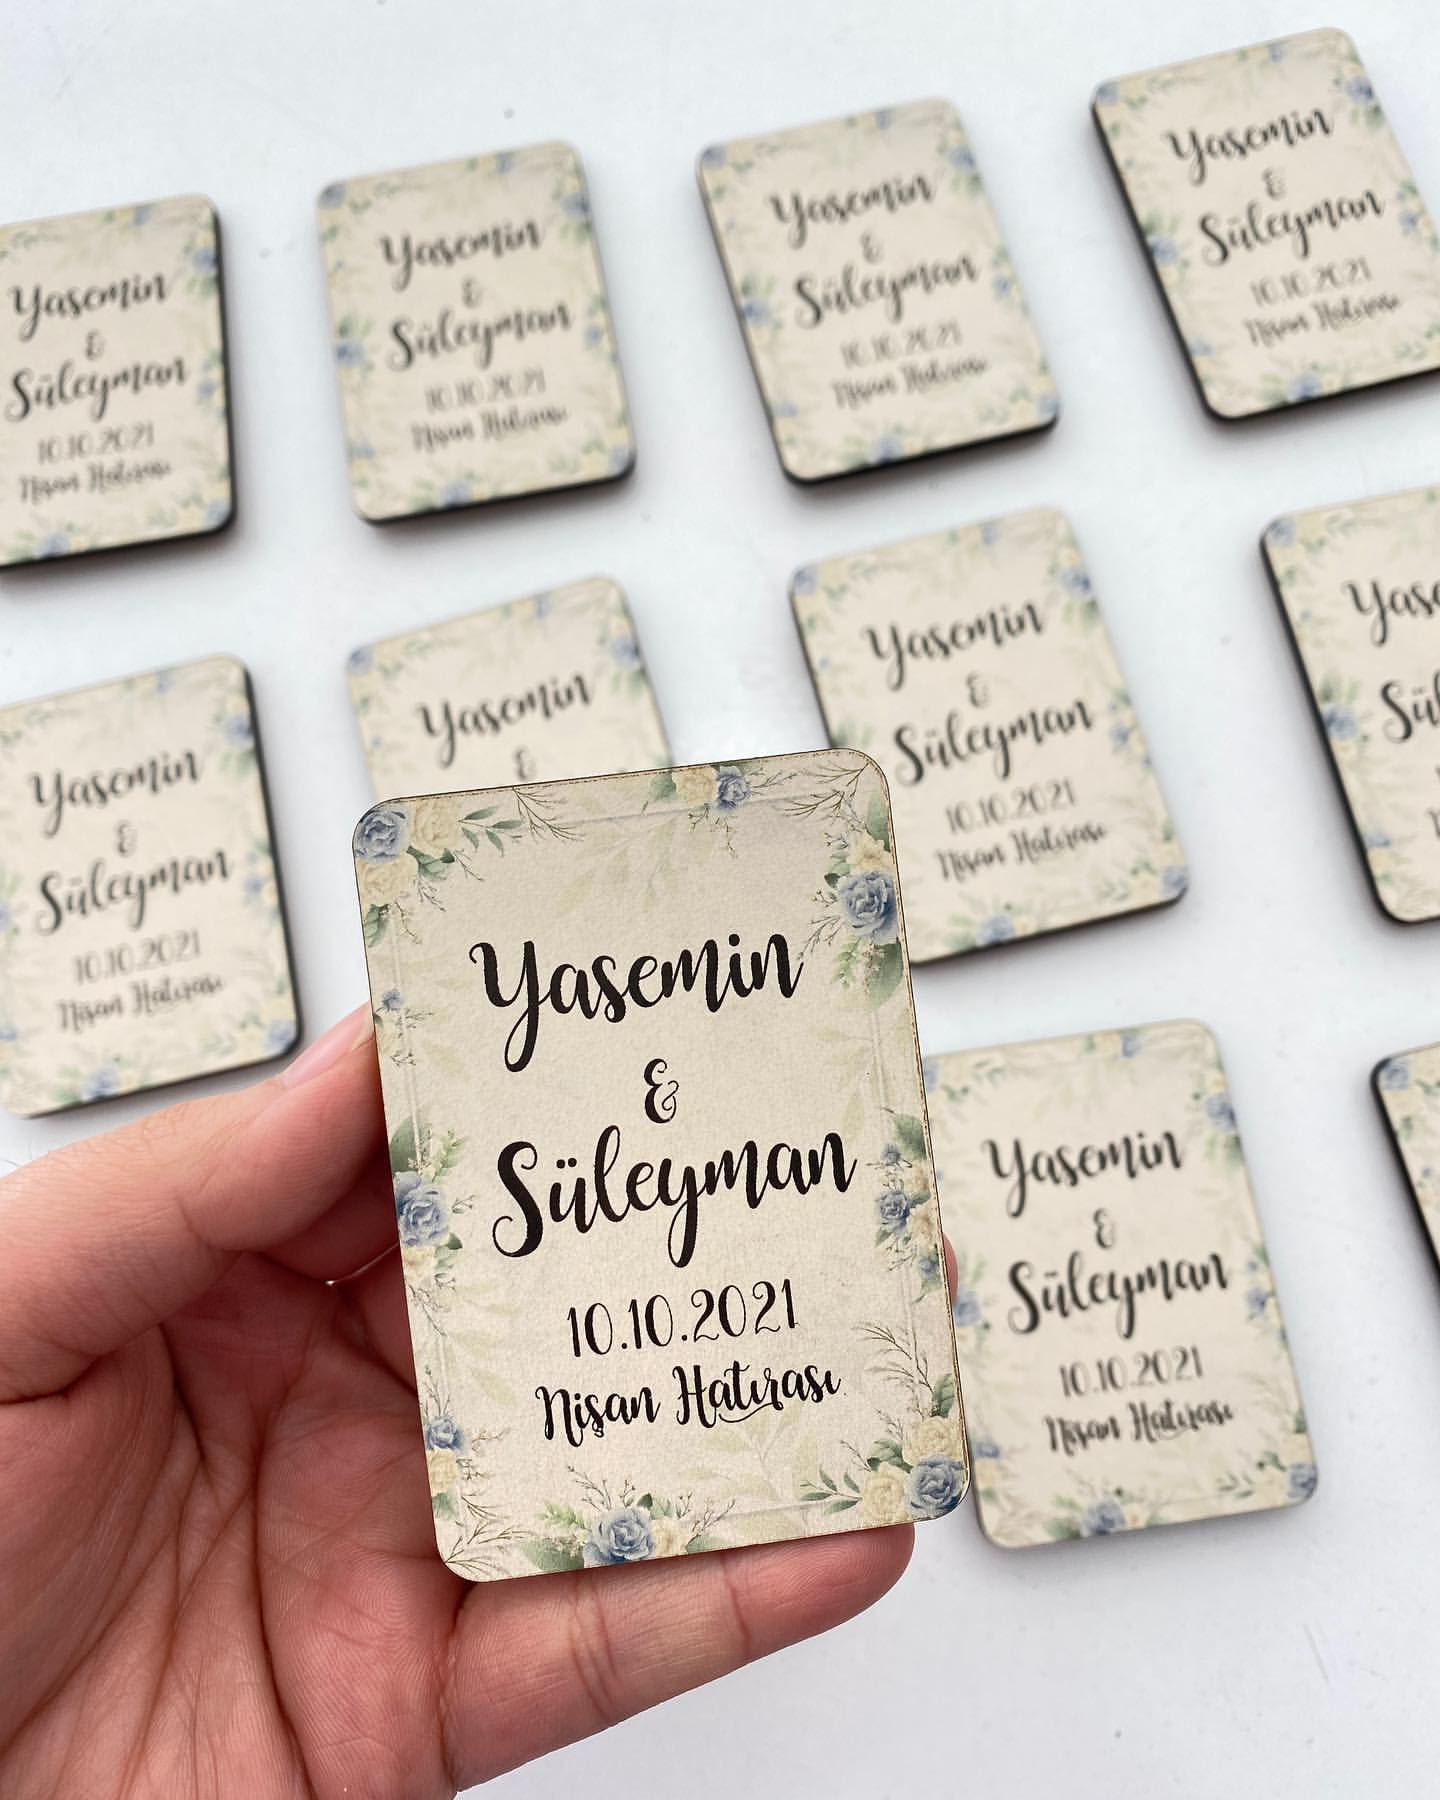 Yasemin
&
Süleyman
10.10.2021
Nişan Hatırası
Yasemin
&
Süleyman
10.10.2021
Nişan Hatırası
Yasemin
&
Süleyman
10.10.2021
Nişan Hatırası
Yasemin
&
Süleyman
10.10.2021
Nişan Hatırası
Yasemin
&
Süleyman
10.10.2021
Nişan Hatırası
Yasemin
&
Süleyman
10.10.2021
Nişan Hatırası
Yasemin
&
Yasemin
&
Süleyman
10.10.2021
Nişan Hatırası
Yasemin
&
Süleyman
10.10.2021
Nişan Hatırası